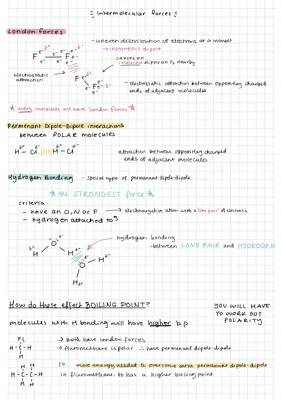 Intermolecular forces
London forces
- uneven distribution of electrons at a moment
→ instantaneous dipole
F — F
causes an
induced dipole on F₂ nearby
electrostatic
attraction
F — F
- electrostatic attraction between oppositely charged
ends of adjacent molecules
* every molecule will have London forces *
Permenant Dipole-Dipole interactions
between POLAR molecules
H — Cl H — Cl
attraction between oppositely charged
ends of adjacent molecules
Hydrogen Bonding - special type of permanent dipole-dipole
* the STRONGEST force *
criteria:
- have an O, N or F → electronegative atom with a lone pair of electrons
- hydrogen attached to
hydrogen bonding
- between LONE PAIR and HYDROGEN
H O H
H O H
How do these effect BOILING POINT?
YOU WILL HAVE
TO WORK OUT
POLARITY
molecules with H bonding will have higher b.p
→ both have London forces
→ fluoromethane is polar ∴ have permanent dipole-dipole
more energy needed to overcome extra permanent dipole-dipole
in fluoromethane so has a higher boiling point